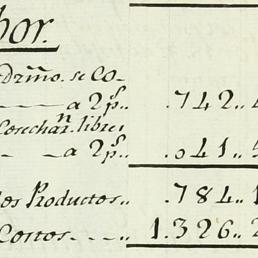 bor.
dzmo. se Co-
a 2p.. .742..
Cosechan. libre,
a 2p.. .041..
los Productos.. .784.1
Costos.... 1.326.2